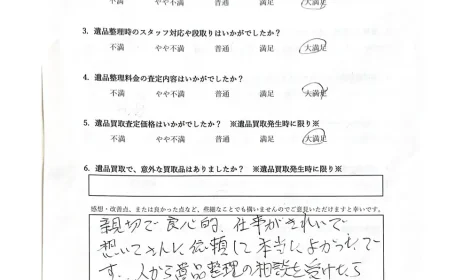 不満 やや不満 普通 満足 大満足
3. 遺品整理時のスタッフ対応や段取りはいかがでしたか？
不満 やや不満 普通 満足 大満足
4. 遺品整理料金の査定内容はいかがでしたか？
不満 やや不満 普通 満足 大満足
5. 遺品買取査定価格はいかがでしたか？ ※遺品買取発生時に限り※
不満 やや不満 普通 満足 大満足
6. 遺品買取で、意外な買取品はありましたか？ ※遺品買取発生時に限り※
感想・改善点、または良かった点など、些細なことでも構いませんのでご意見いただけますと幸いです。
親切で良心的、仕事がきれいで、
さんに依頼して本当によかったで
す。人から遺品整理の相談を受けたら